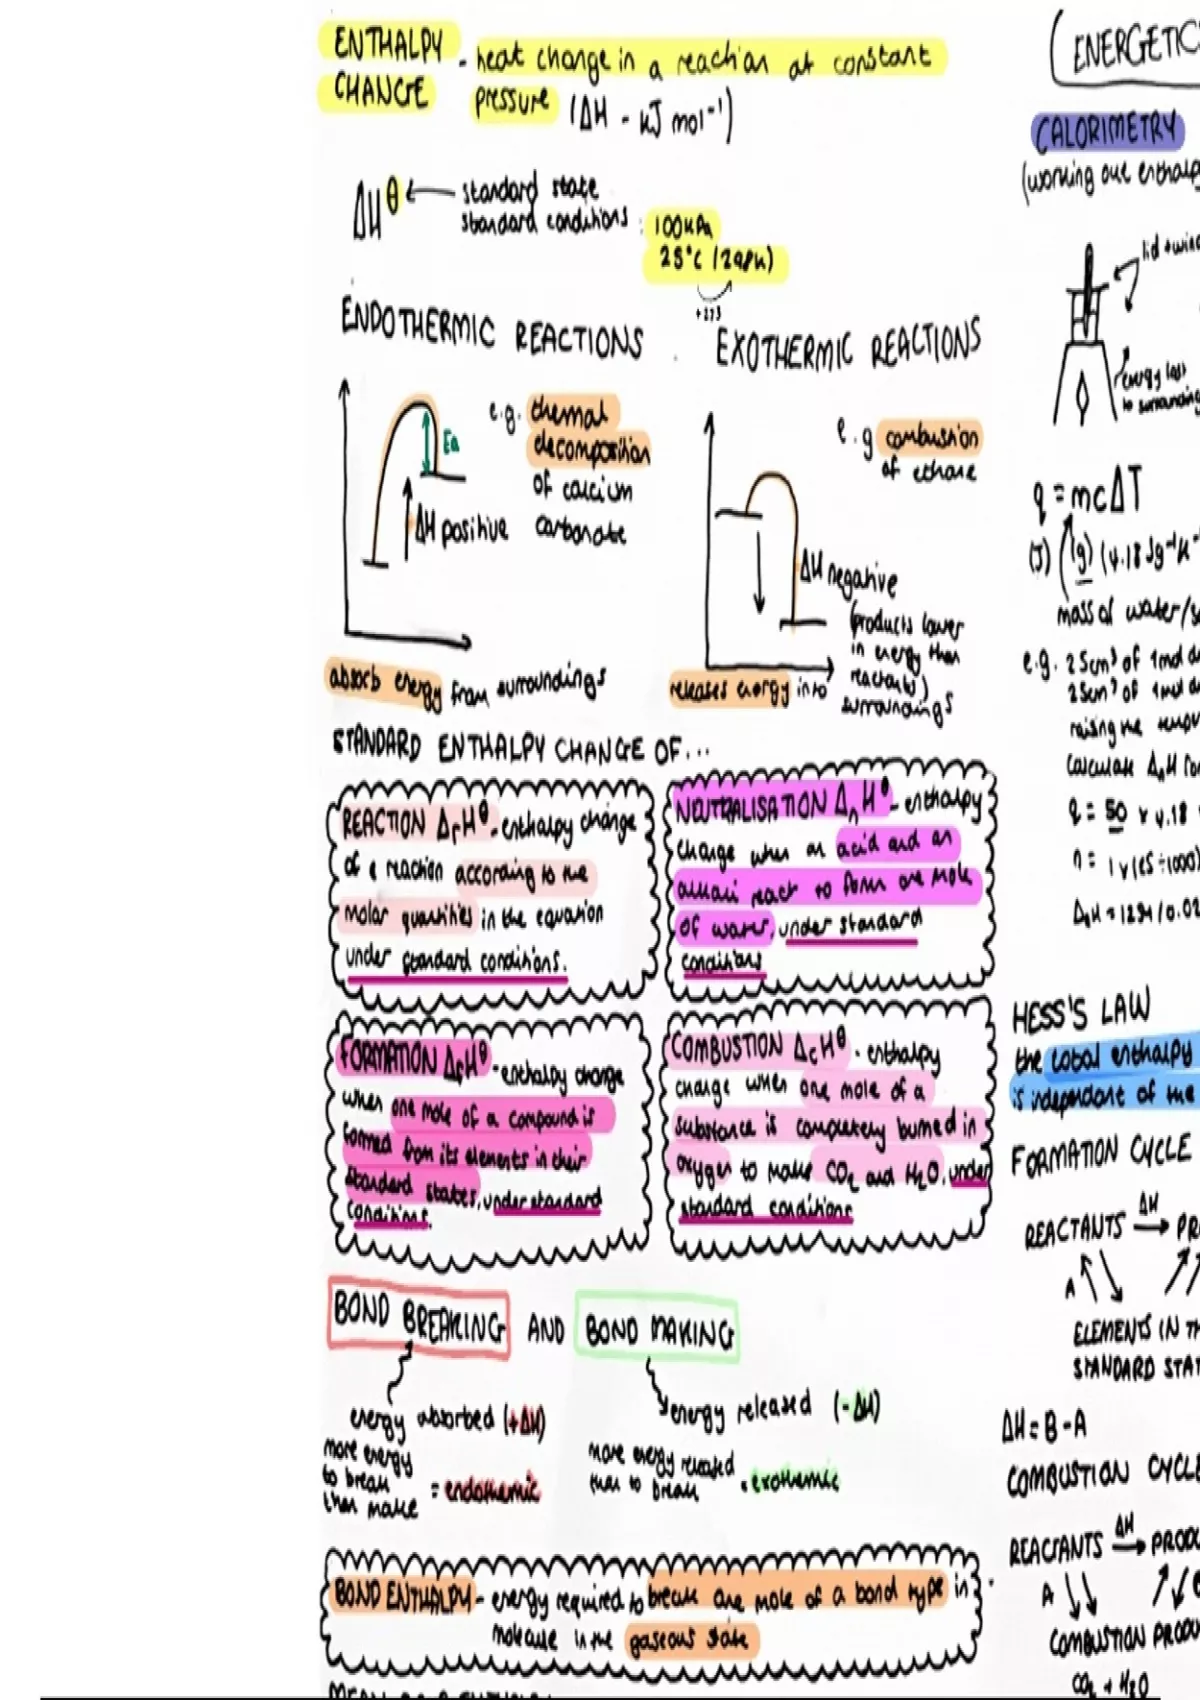 ENTHALPY CHANGE - heat change in a reaction at constant
pressure (ΔH - kJ mol⁻¹)
ΔH θ ← standard state
standard conditions : 100kPa
25°C (298K)
+273
ENDOTHERMIC REACTIONS
Ea
ΔH positive
e.g. thermal
decomposition
of calcium
carbonate
absorb energy from surroundings
EXOTHERMIC REACTIONS
e.g combustion
of ethane
ΔH negative
(products lower
in energy than
reactants)
releases energy into
surroundings
STANDARD ENTHALPY CHANGE OF...
REACTION ΔrHθ - enthalpy change
of a reaction according to the
molar quantities in the equation
under standard conditions.
NEUTRALISATION ΔnHθ - enthalpy
change when an acid and an
alkali react to form one mole
of water, under standard
conditions
FORMATION ΔfHθ - enthalpy change
when one mole of a compound is
formed from its elements in their
standard states, under standard
conditions.
COMBUSTION ΔcHθ - enthalpy
change when one mole of a
substance is completely burned in
oxygen to make CO₂ and H₂O, under
standard conditions
BOND BREAKING AND BOND MAKING
energy absorbed (+ΔH)
more energy
to break
than make
= endothermic
energy released (-ΔH)
more energy released
than to break
= exothermic
BOND ENTHALPY - energy required to break one mole of a bond type in
molecule in the gaseous state
ENERGETICS
CALORIMETRY
(working out enthalp
lid + wire
energy lost
to surrounding
q = mcΔT
(J) (g) (4.18 Jg⁻¹K⁻
mass of water/s
e.g. 25cm³ of 1mol d
25cm³ of 1mol d
raising the temp
calculate ΔnH
q = 50 x 4.18
n = 1 x (25 ÷ 1000)
HESS'S LAW
the total enthalpy
is independent of the
FORMATION CYCLE
REACTANTS ΔH → PR
A
ELEMENTS IN TH
STANDARD STAT
ΔH = B - A
COMBUSTION CYCLE
REACTANTS ΔH → PRODU
A
COMBUSTION PRODU
CO₂ + H₂O